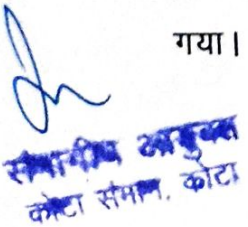 गया।
संभागीय आयुक्त
कोटा संभाग, कोटा